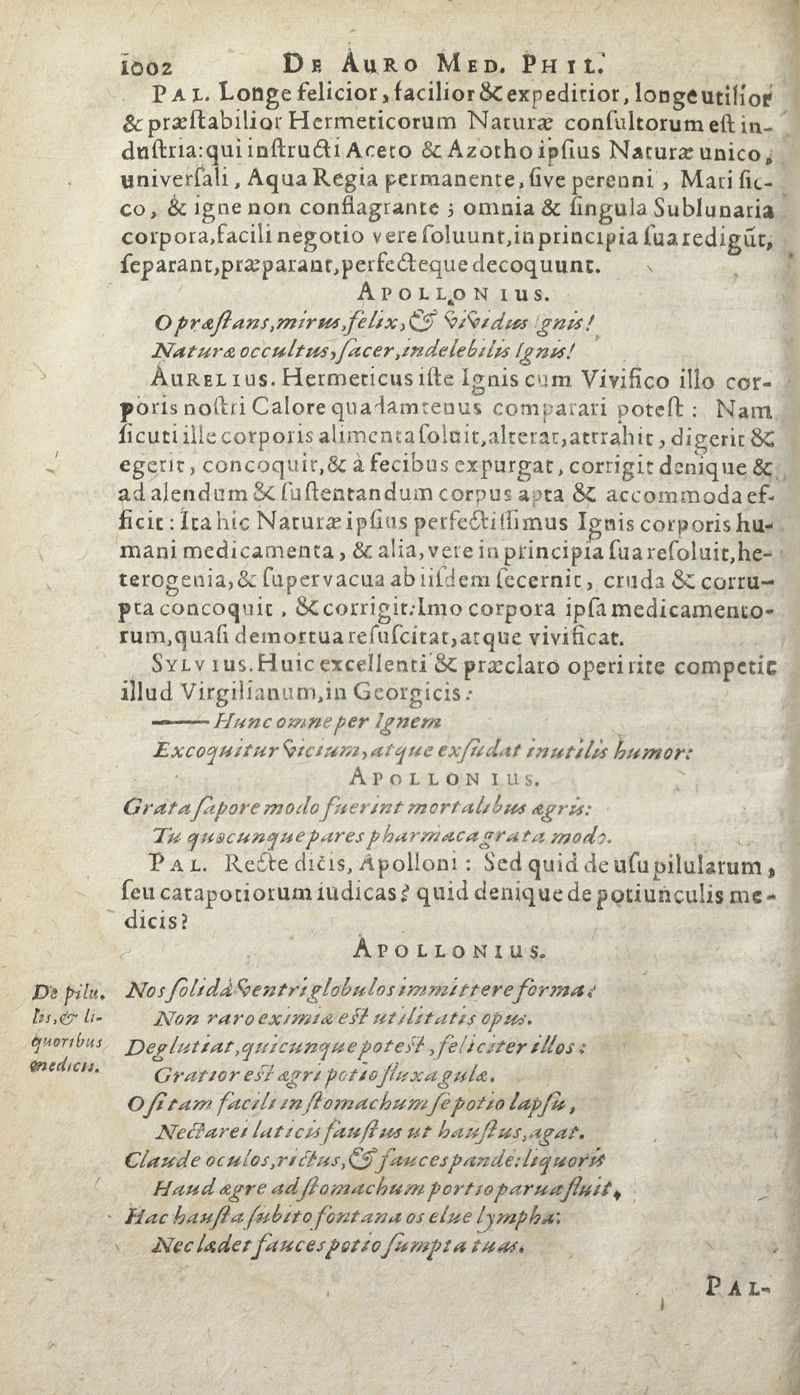 1002 DE AURO MED. PHIL.
PAL. Longe felicior, facilior & expeditior, longe utilior
& præſtabilior Hermeticorum Naturæ conſultorum eſt in-
duſtria: qui inſtructi Aceto & Azotho ipſius Naturæ unico,
univerſali, Aqua Regia permanente, ſive perenni, Mari ſic-
co, & igne non conflagrante; omnia & ſingula Sublunaria
corpora, facili negotio vere ſoluunt, in principia ſua redigũt,
ſeparant, præparant, perfecteque decoquunt.
APOLLONIUS.
O præſtans, mirus, felix, & vividus Ignis!
Naturæ occultus, ſacer, indelebilis Ignis!
AURELIUS. Hermeticus iſte Ignis cum Vivifico illo cor-
poris noſtri Calore quadamtenus comparari poteſt: Nam
ſicuti ille corporis alimenta ſoluit, alterat, attrahit, digerit &
egerit, concoquit, & à fecibus expurgat, corrigit denique &
ad alendum & ſuſtentandum corpus apta & accommoda ef-
ficit: Ita hic Naturæ ipſius perfectiſſimus Ignis corporis hu-
mani medicamenta, & alia, vere in principia ſua reſoluit, he-
terogenia, & ſupervacua ab iiſdem ſecernit, cruda & corru-
pta concoquit, & corrigit: Imo corpora ipſa medicamento-
rum, quaſi demortua reſuſcitat, atque vivificat.
SYLVIUS. Huic excellenti & præclaro operi rite competit
illud Virgilianum, in Georgicis:
—— Hunc omne per Ignem
Excoquitur vicium, atque exſudat inutilis humor:
APOLLONIUS.
Grata ſapore modo fuerint mortalibus ægris:
Tu quæcunque pares pharmaca grata modo.
PAL. Recte dicis, Apolloni: Sed quid de uſu pilularum,
ſeu catapotiorum iudicas? quid denique de potiunculis me-
dicis?
APOLLONIUS.
De pilu-
lis, & li-
quoribus
medicis.
Nos ſolidâ ventri globulos immittere formæ?
Non raro eximiæ eſt utilitatis opus.
Deglutiat, quicunque poteſt, feliciter illos:
Gratior eſt ægri potio fluxa gulæ.
O ſi tam facili in ſtomachum ſe potio lapſu,
Nectarei laticis fauſtus ut hauſtus, agat.
Claude oculos, rictus, & fauces pande: liquoris
Haud ægre ad ſtomachum portio parua fluit.
Hac hauſta ſubito fontana os elue lympha:
Nec lædet fauces potio ſumpta tuas.
PAL-